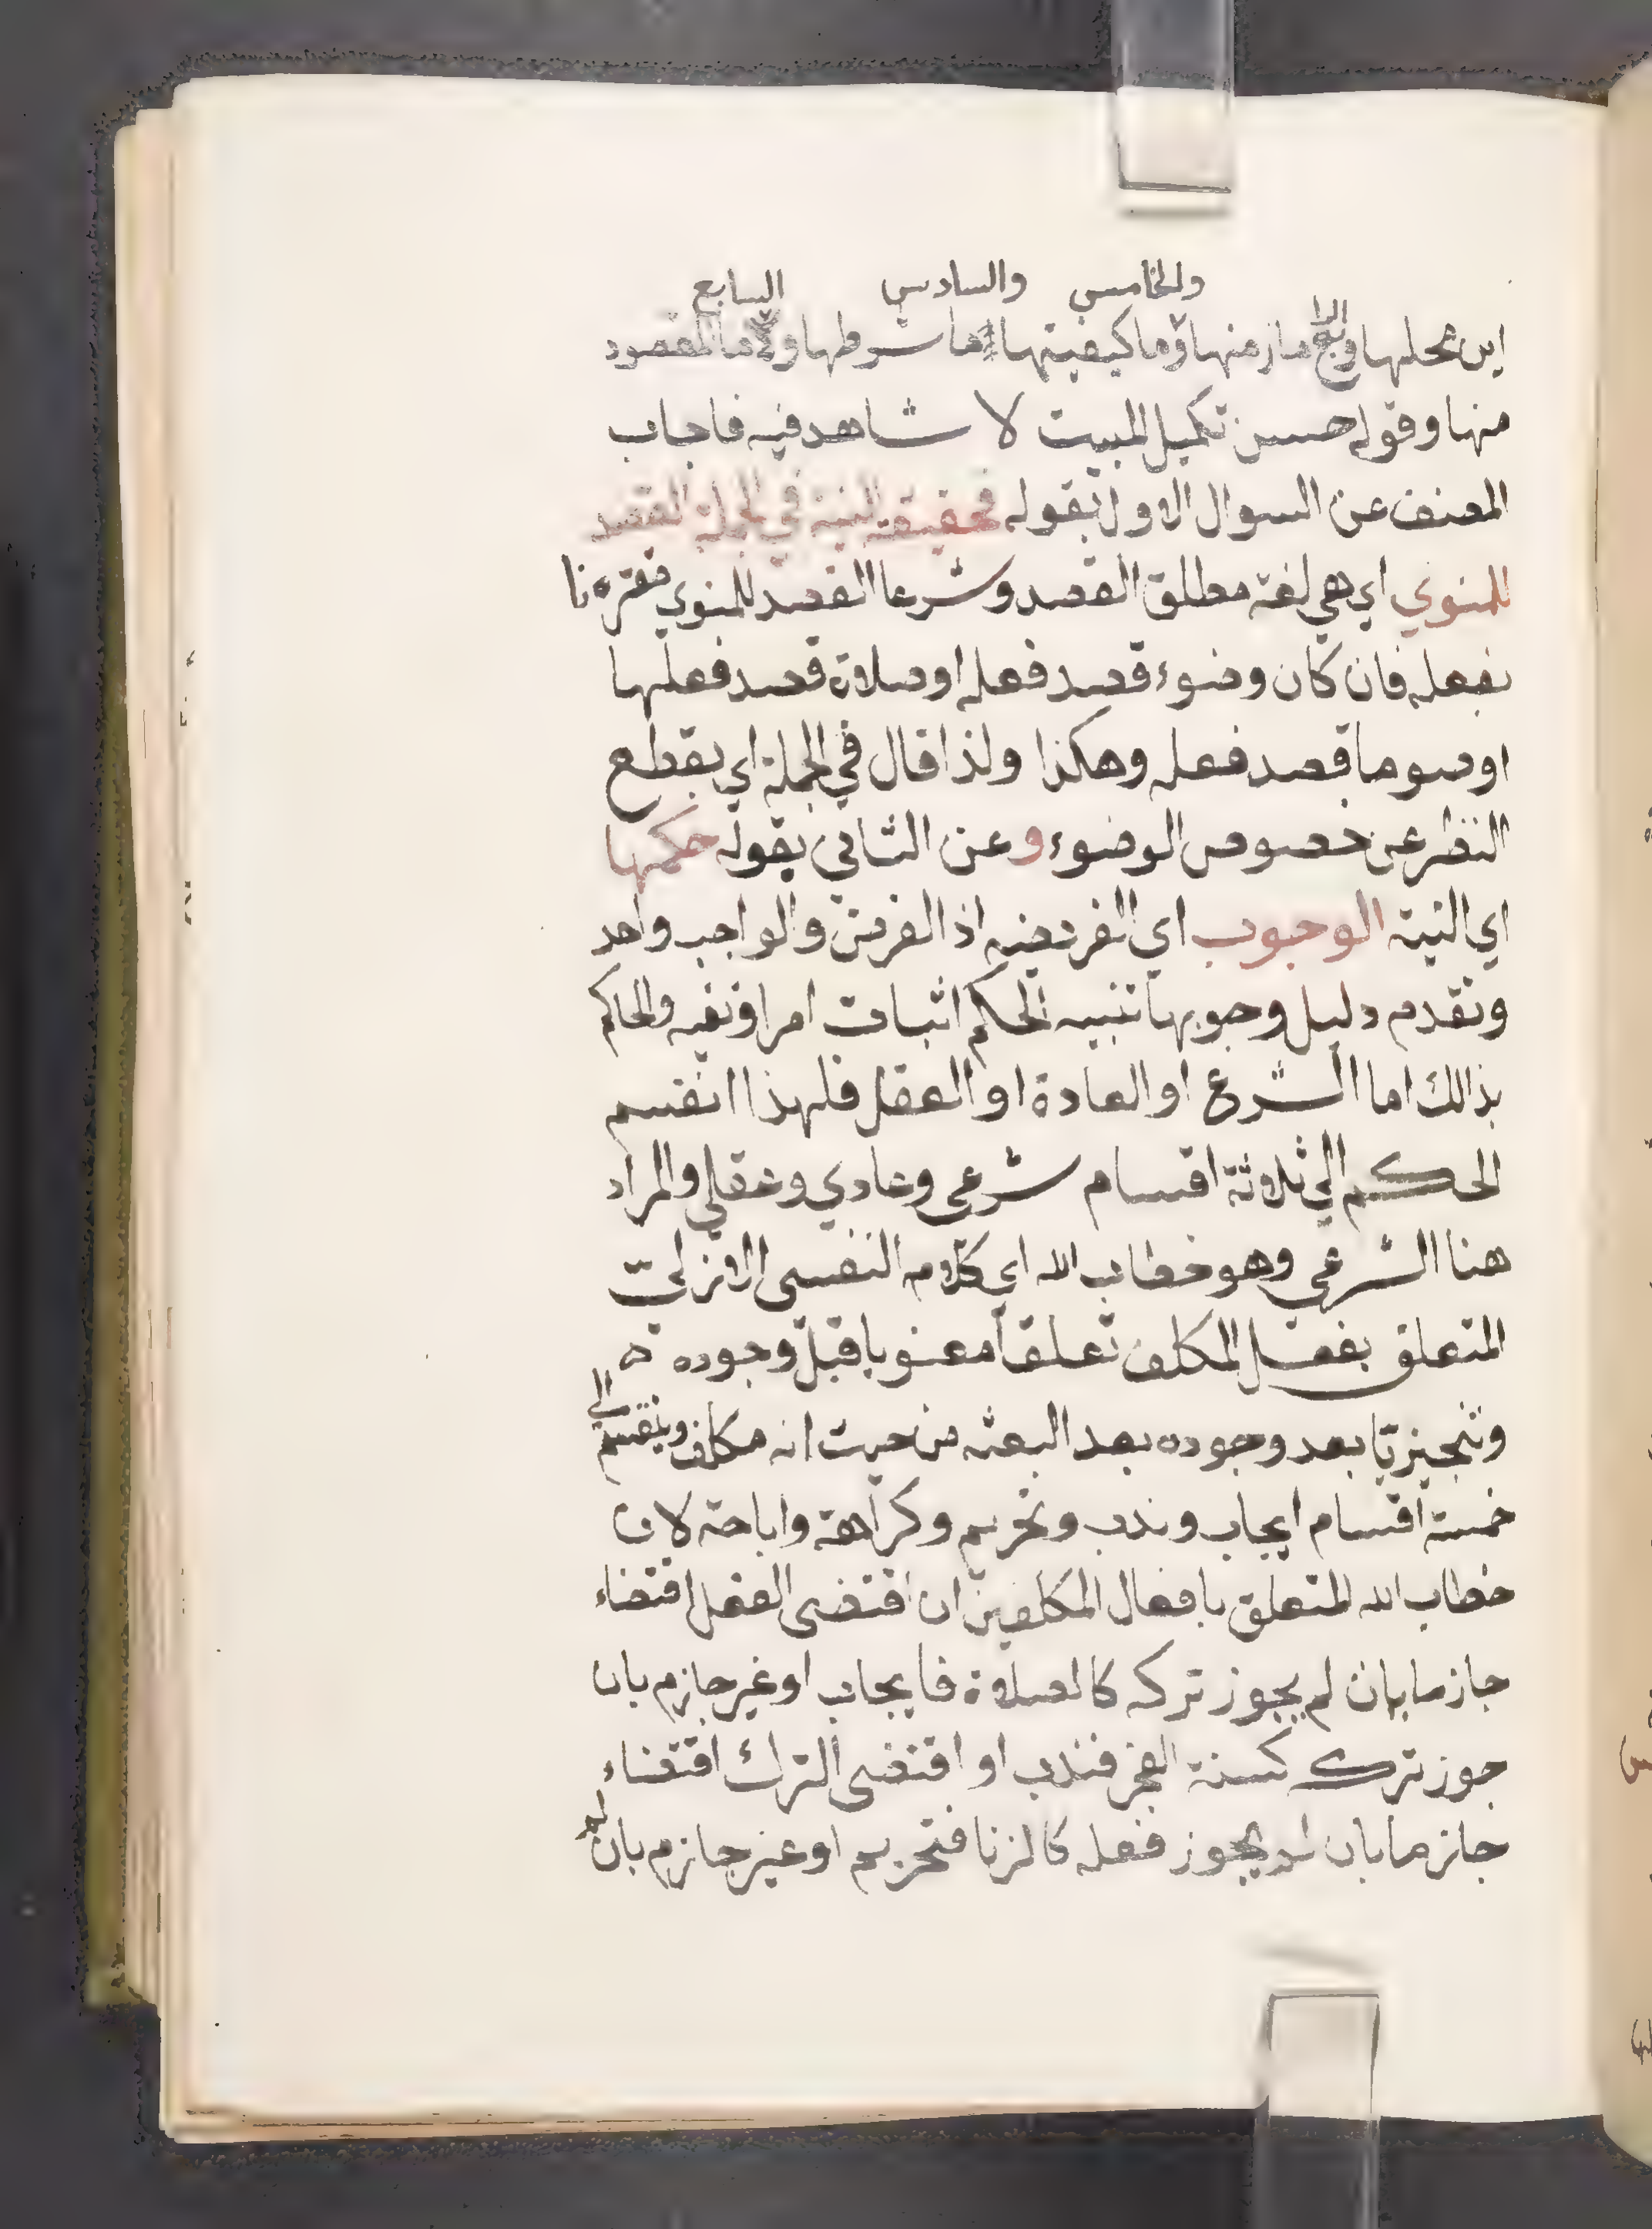 والخامس والسادس السابع
اين محلها والرابع ما زمنها وما كيفيتها وما شرطها وما المقصود
منها وقوله حسن تكميل للبيت لا شاهد فيه فاجاب
المصنف عن السوال الاول بقوله فحقيقة النية في الجملة القصد
للمنوي اي هي لغة مطلق القصد وشرعا القصد للمنوي مقترنا
بفعله فان كان وضوء قصد فعله او صلاة قصد فعلها
او صوما قصد فعله وهكذا ولذا قال في الجملة اي بقطع
النظر عن خصوص الوضوء وعن الثاني بقوله حكمها
اي النية الوجوب اي الفرضيه اذ الفرض والواجب واحد
وتقدم دليل وجوبها تنبيه الحكم اثبات امر او نفيه والحاكم
بذالك اما الشرع او العادة او العقل فلهذا انقسم
الحكم الي ثلاثة اقسام شرعي وعادي وعقلي والمراد
هنا الشرعي وهو خطاب الله اي كلامه النفسي الازلي
المتعلق بفعل المكلف تعلقا معنويا قبل وجوده
وتنجيزيا بعد وجوده بعد البعثه من حيث انه مكلف وينقسم الي
خمسة اقسام ايجاب وندب وتحريم وكراهة واباحة لان
خطاب الله المتعلق بافعال المكلفين ان اقتضى الفعل اقتضاء
جازما بان لم يجوز تركه كالصلاة فايجاب او غير جازم بان
جوز ترك كسنة الفجر فندب او اقتضى الترك اقتضاء
جازما بان لم يجوز فعله كالزنا فتحريم او غير جازم بان